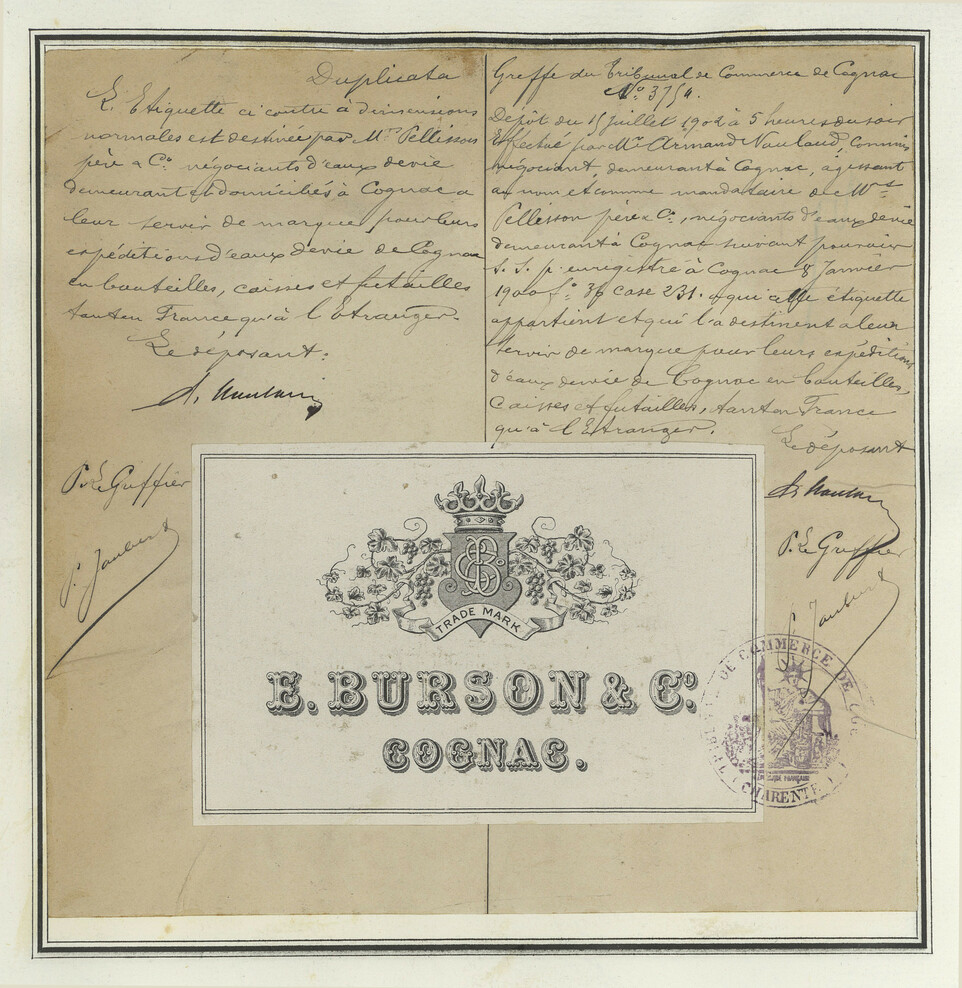 Duplicata
L'Etiquette ci contre à dimensions
normales est destinée par Mrs Pellisson
père & Co négociants d'eaux de vie
demeurant & domiciliés à Cognac a
leur servir de marque pour leurs
expéditions d'eaux de vie de Cognac
en bouteilles, caisses et futailles
tant en France qu'à l'Etranger.
Le déposant:
P. Le Greffier
Greffe du Tribunal de Commerce de Cognac
No 3754.
Dépôt du 15 Juillet 1902 à 5 heures du soir
Effectué par Mr Armand Naulaud, Commis
négociant, demeurant à Cognac, agissant
au nom et comme mandataire de Mrs
Pellisson père & Co, négociants d'eaux de vie
demeurant à Cognac suivant pouvoir
S. S. p. enregistré à Cognac 8 Janvier
1900 fo 36 case 231. à qui cette étiquette
appartient et qui l'a destinent a leur
servir de marque pour leurs expéditions
d'eaux de vie de Cognac en bouteilles,
caisses et futailles, tant en France
qu'à l'Etranger.
Le déposant
P. Le Greffier
TRADE MARK
E. BURSON & Co.
COGNAC.
DE COMMERCE DE
CHARENTE